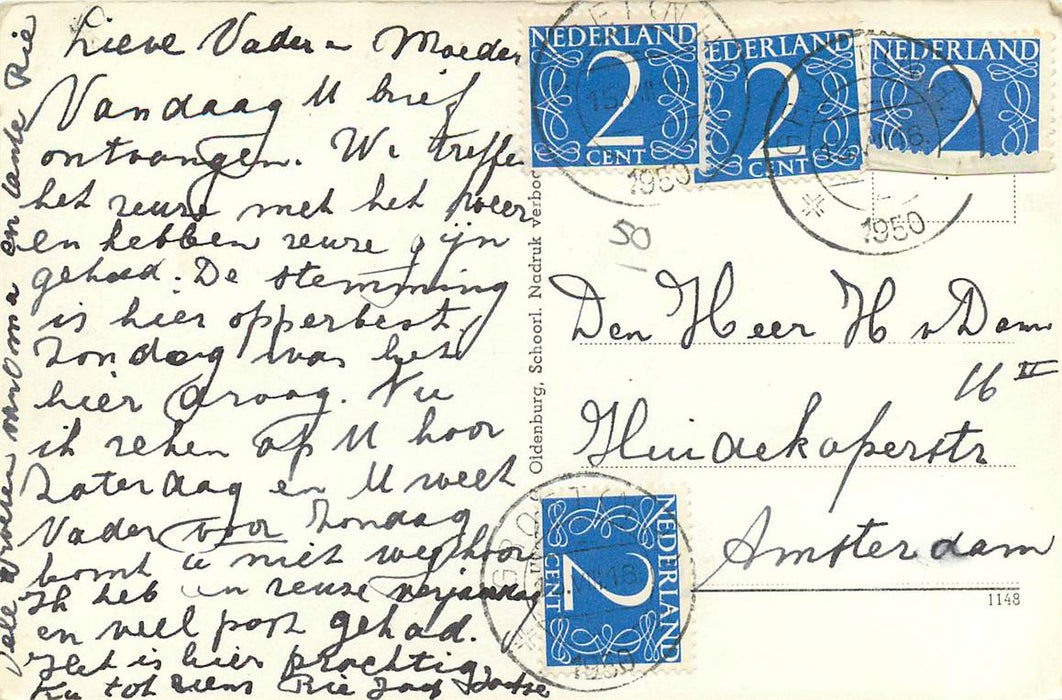 Lieve Vader en Moeder
Vandaag U brief
ontvangen. We treffe
het reuze met het weer
en hebben reuze fijn
gehad. De stemming
is hier opperbest.
Zondag was het
hier droog. Nu
ik reken op U hoor
Zaterdag en U weet
Vader voor Zondag
komt u niet weg hoor
Ik heb een reuze verjaardag
en veel post gehad.
Het is hier prachtig.
Nu tot ziens Rie Jaap
Vele en tante Rie
NEDERLAND
2
CENT
NEDERLAND
2
CENT
NEDERLAND
2
1950
1950
50
Oldenburg, Schoorl. Nadruk verboden
Den Heer H v Dam
16 II
Huidekoperstr
Amsterdam
NEDERLAND
2
CENT
1950
1148